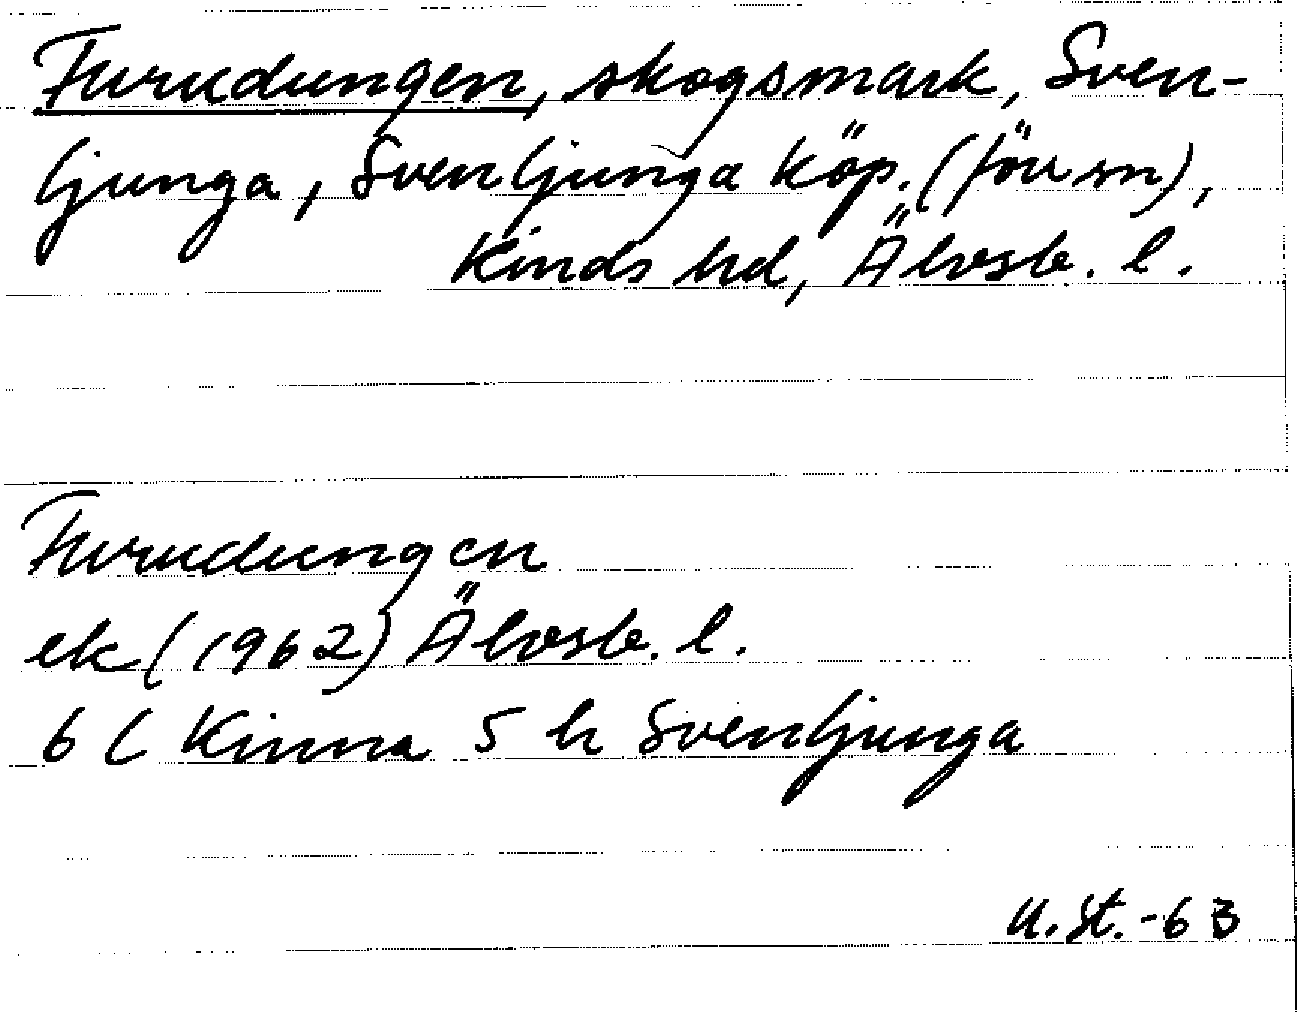 Furudungen, skogsmark, Sven-
ljunga, Svenljunga köp. (förr sn),
Kinds hd, Älvsb. l.
Furudungen
ek (1962) Älvsb. l.
6 C Kinna 5 h Svenljunga
U. St. -63